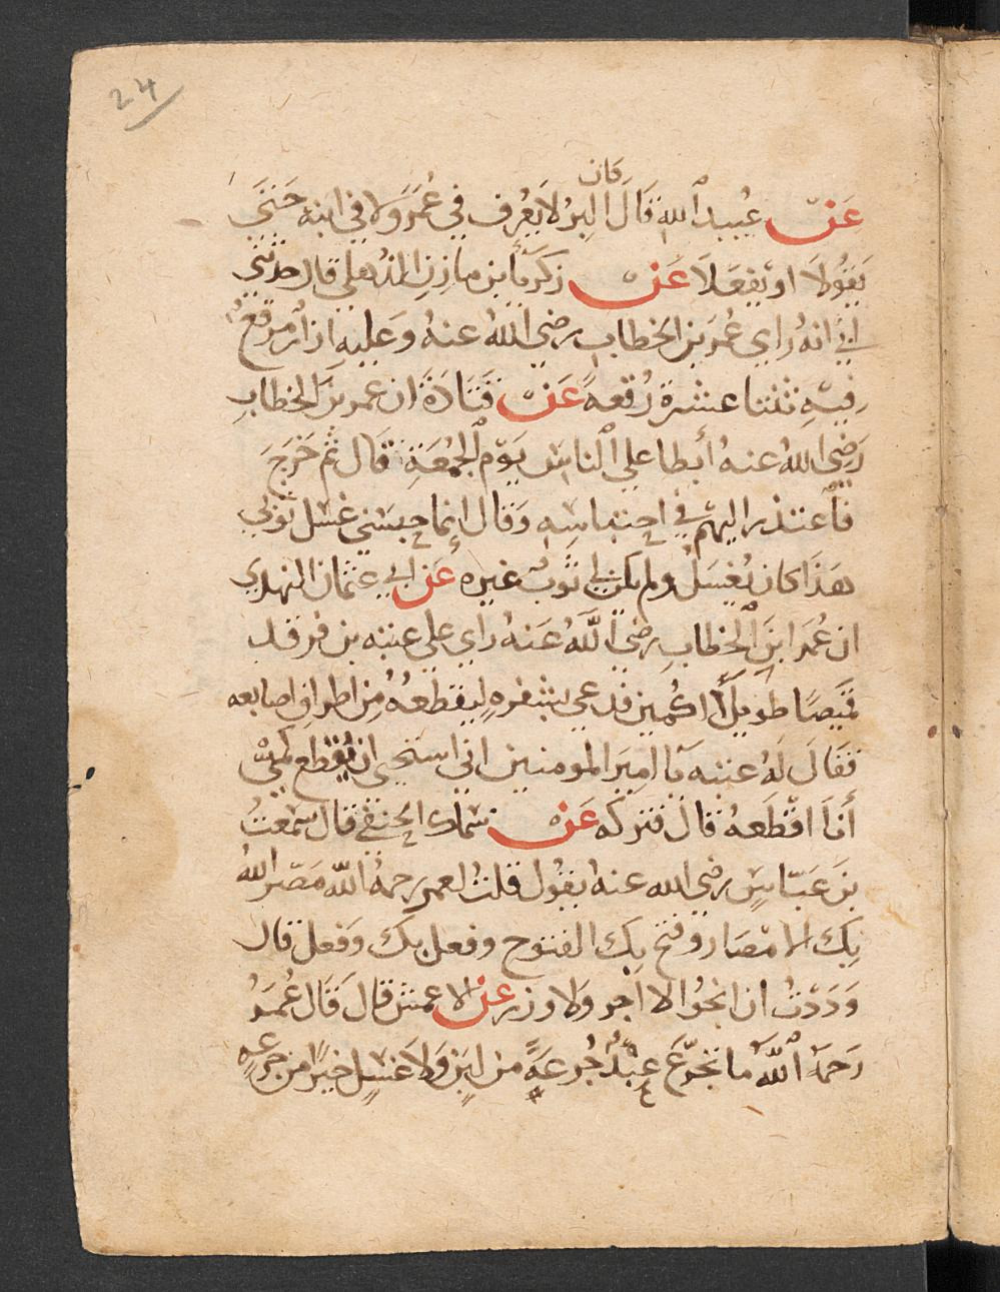 24
كان
عَنْ عُبيد الله قَالَ البِرُ لاَ يُعْرف في عُمَرَ وَلا في ابنهِ حَتىَ
يَقُولاَ او يَفعَلاَ عَنْ زكرَيا بن مازن المذهلي قال حدثني
ابي انهُ راي عُمرَ بنَ الخطاب رضي اللهُ عنهُ وَعليهِ ازار مرقعٌ
فيهِ ثنتا عشرة رُقعةً عَنْ قَتَادَةَ ان عمر بنَ الخطابِ
رَضي اللهُ عنهُ أبطا علي الناس يَوْم الجُمعَةِ قَال ثم خرَجَ
فأعتذر اليهمْ في احتباسه وَقال انما حبسَني غسْل ثوبي
هَذَا كان يُغسَلُ ولم يكن لي ثَوبٌ غيره عَن ابي عثمان النهدي
ان عُمَر ابنَ الخطاب رضي اللَّهُ عَنهُ راي علي عتبه بن فرقد
قميصًا طويلَ الاكمين فدعي بشفره ليقطعهُ مِن اطراف اصابعه
فقَالَ لهُ عتبه يَا اميَر المومنين اني استحي ان يُقطع كمّيْ
أنَا اقْطَعهُ قال فتركه عَنْ سماك الحنفي قال سَمعتُ
بنَ عَبّاسٍ رضي الله عنهُ يقُول قلتُ لعمر رحمهُ اللّه مَصّر اللهُ
بِك الامصَار وفتح بك الفتوح وفعل بك وَفعل قال
وَدَدْتُ ان انجُوا لا اجر وَلا وزر عن الاعمش قال قَال عُمَرُ
رَحمَهُ اللَّهُ ما تجرّعَ عبْدٌ جُرعَةً من لبَنٍ وَلاَ عَسلٍ خيرًا من جرعهٍ